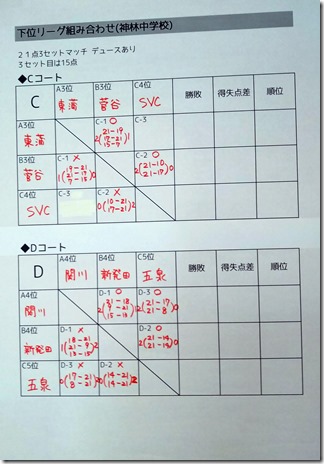 下位リーグ組み合わせ(神林中学校)
21点3セットマッチ デュースあり
3セット目は15点
◆Cコート
C A3位 東蒲 B3位 菅谷 C4位 SVC 勝敗 得失点差 順位
A3位 東蒲 C-1 ○ 2(21-19 17-21 15-7)1 C-3
B3位 菅谷 C-1 × 1(19-21 21-17 7-15)2 C-2 ○ 2(21-10 21-17)0
C4位 SVC C-3 C-2 × 0(10-21 17-21)2
◆Dコート
D A4位 関川 B4位 新発田 C5位 五泉 勝敗 得失点差 順位
A4位 関川 D-1 ○ D-3 ○ 2(21-17 21-8)0
B4位 新発田 D-1 × 1(18-21 21-9 13-15)2 D-2 ○ 2(21-14 21-14)0
C5位 五泉 D-3 × 0(17-21 8-21) D-2 × 0(14-21 14-21)2